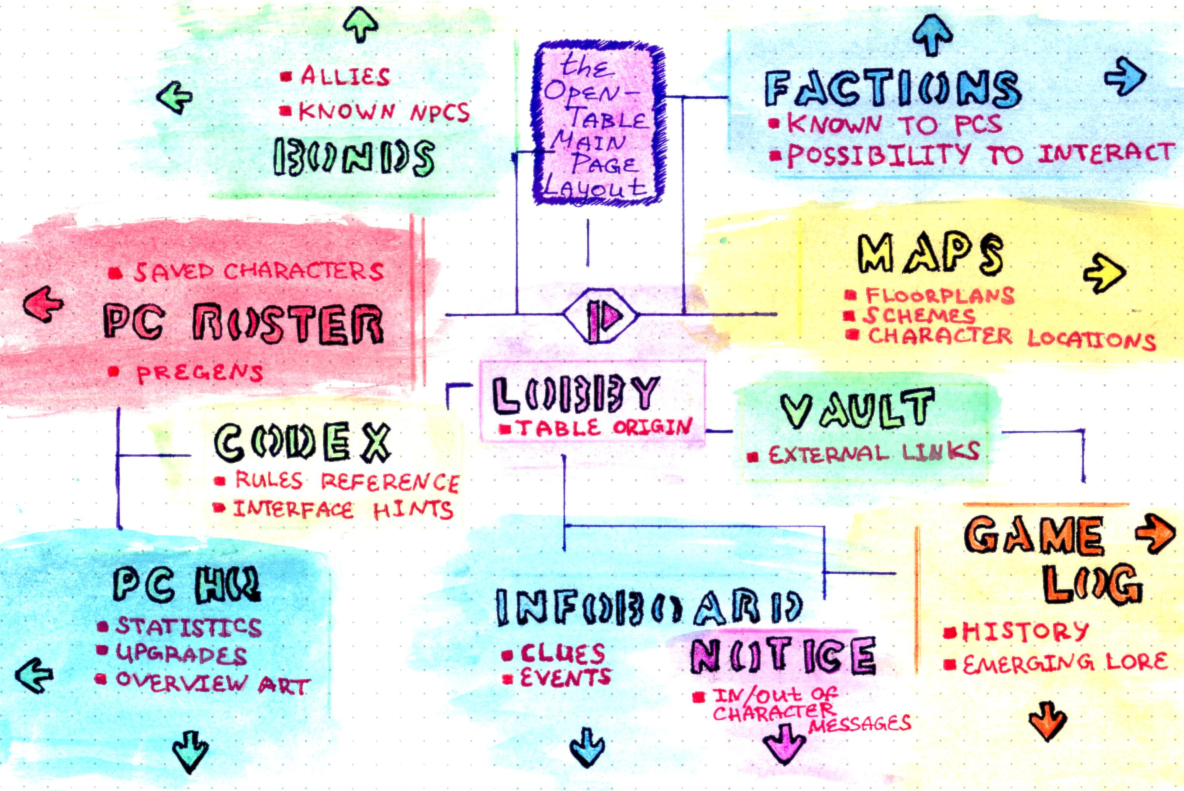 the
Open-
Table
Main
Page
Layout
▪ ALLIES
▪ KNOWN NPCS
BONDS
FACTIONS
▪ KNOWN TO PCS
▪ POSSIBILITY TO INTERACT
▪ SAVED CHARACTERS
PC ROSTER
▪ PREGENS
MAPS
▪ FLOORPLANS
▪ SCHEMES
▪ CHARACTER LOCATIONS
LOBBY
▪ TABLE ORIGIN
VAULT
▪ EXTERNAL LINKS
CODEX
▪ RULES REFERENCE
▪ INTERFACE HINTS
GAME
LOG
▪ HISTORY
▪ EMERGING LORE
PC HQ
▪ STATISTICS
▪ UPGRADES
▪ OVERVIEW ART
INFOBOARD
▪ CLUES
▪ EVENTS
NOTICE
▪ IN/OUT OF
CHARACTER
MESSAGES